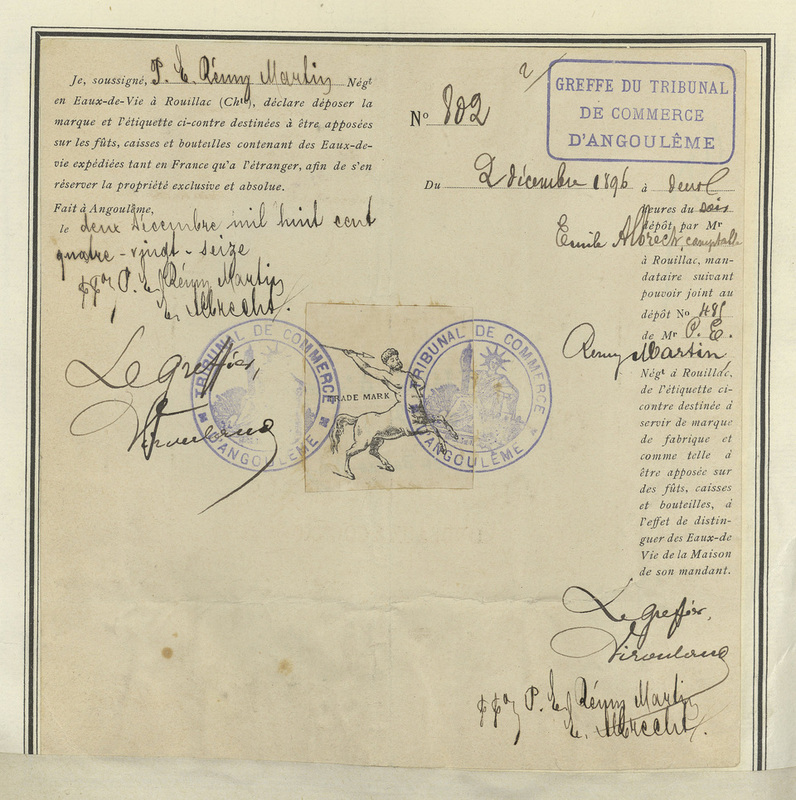 Je, soussigné, P. E. Rémy Martin Négt
en Eaux-de-Vie à Rouillac (Chte), déclare déposer la
marque et l'étiquette ci-contre destinées à être apposées
sur les fûts, caisses et bouteilles contenant des Eaux-de-
vie expédiées tant en France qu'a l'étranger, afin de s'en
réserver la propriété exclusive et absolue.
Fait à Angoulême,
le deux Décembre mil huit cent
quatre-vingt-seize
ppon P. E. Rémy Martin
E. Albrecht.
Le Greffier,
TRIBUNAL DE COMMERCE
D'ANGOULÊME
TRADE MARK
TRIBUNAL DE COMMERCE
D'ANGOULÊME
GREFFE DU TRIBUNAL
DE COMMERCE
D'ANGOULÊME
No 802
Du 2 décembre 1896 à deux
heures du soir
dépôt par Mr
Emile Albrecht, comptable
à Rouillac, man-
dataire suivant
pouvoir joint au
dépôt No 485
de Mr P. E.
Remy Martin,
Négt à Rouillac,
de l'étiquette ci-
contre destinée à
servir de marque
de fabrique et
comme telle à
être apposée sur
des fûts, caisses
et bouteilles, à
l'effet de distin-
guer des Eaux-de
Vie de la Maison
de son mandant.
Le Greffier,
ppon P. E. Rémy Martin
E. Albrecht.